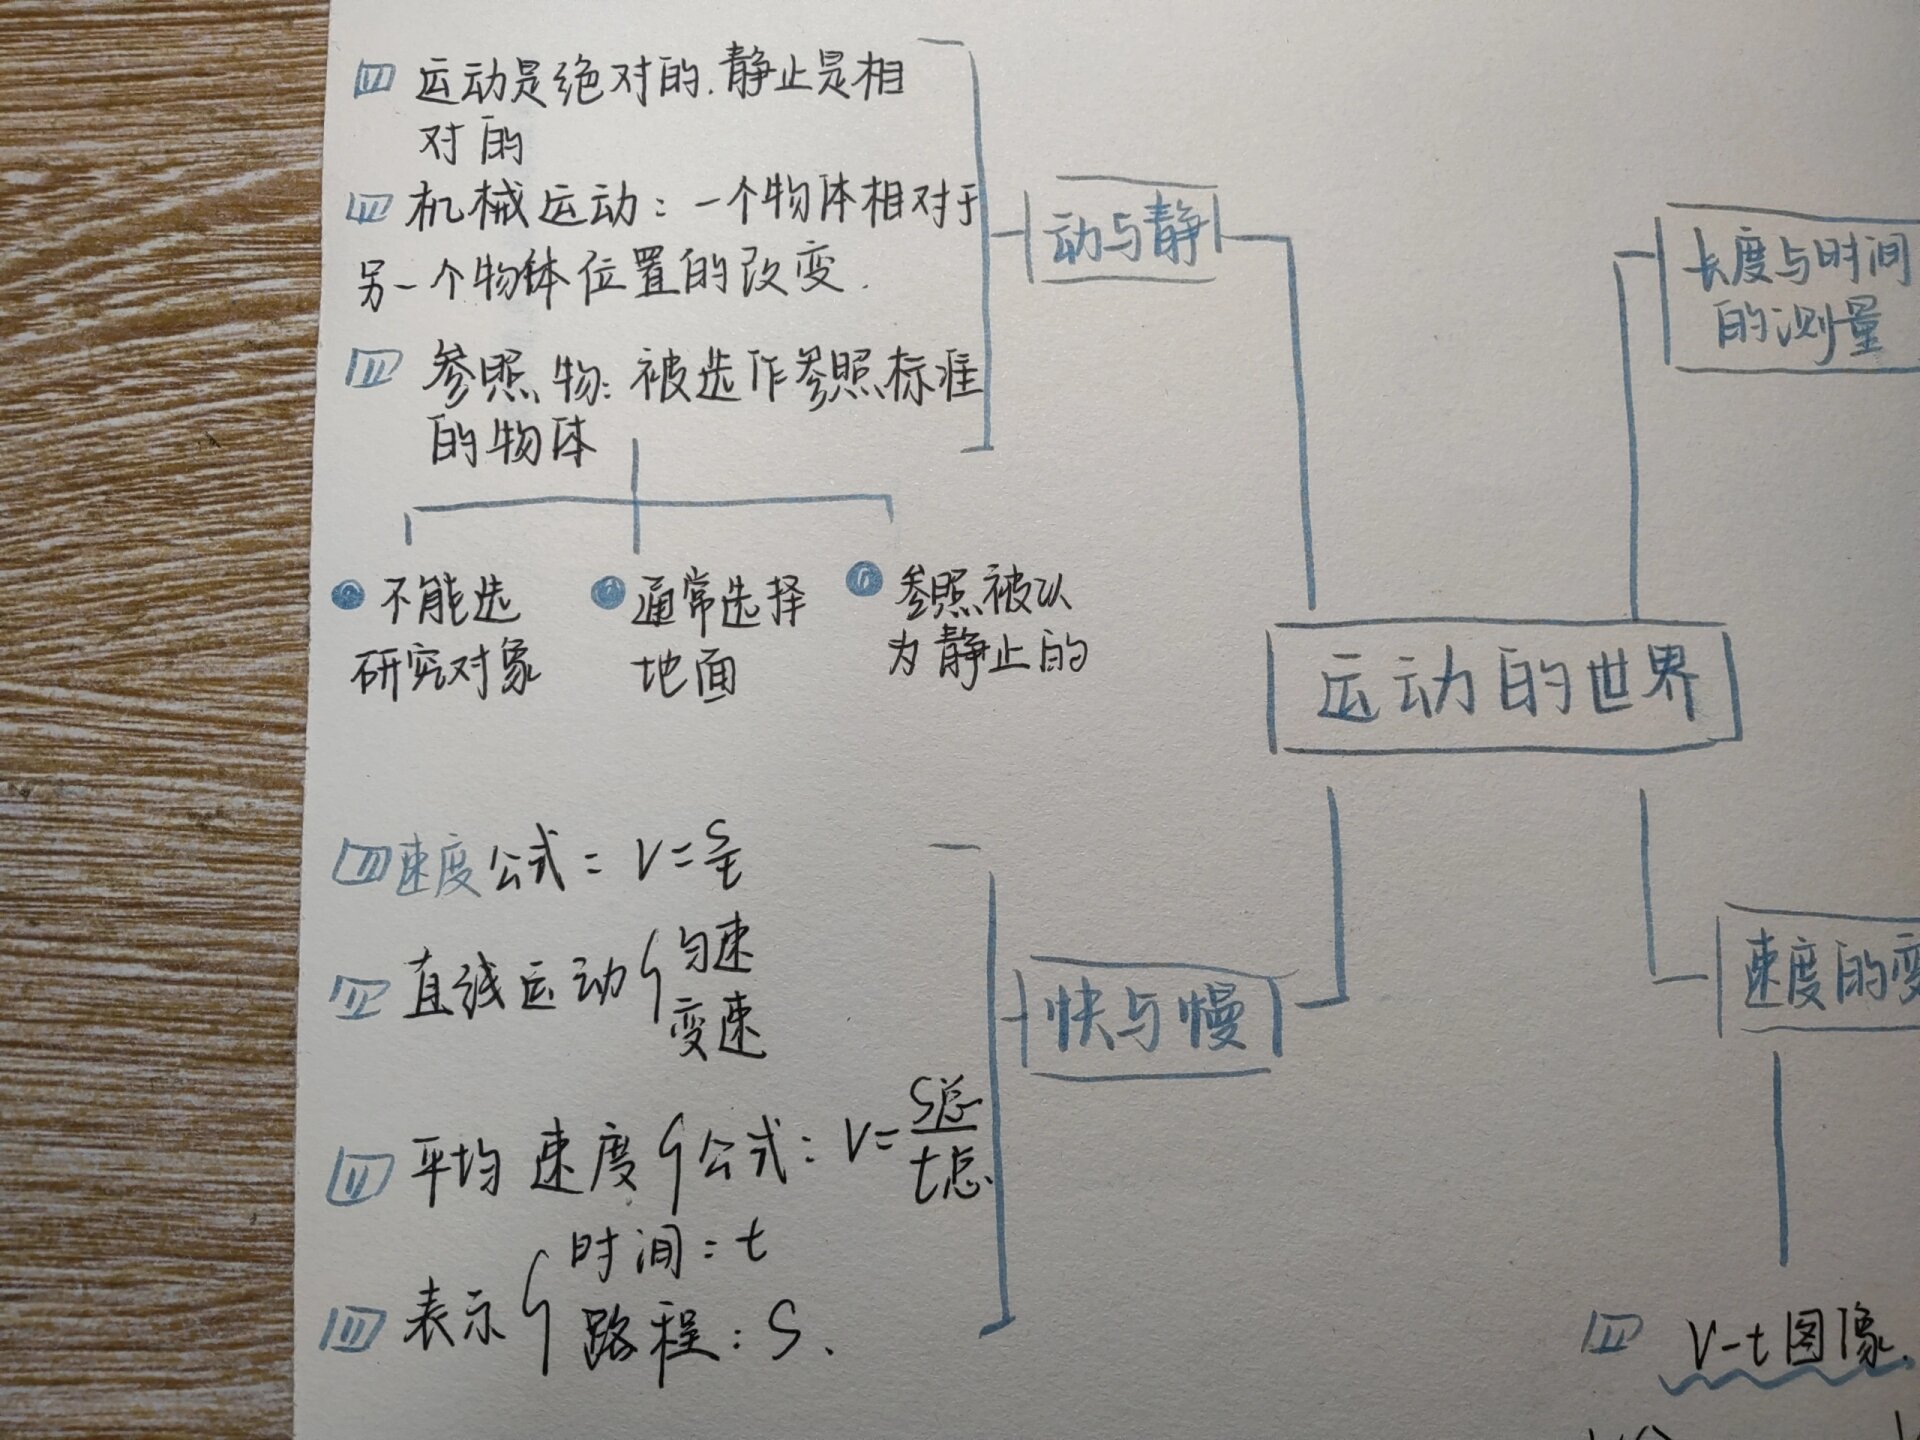 运动是绝对的.静止是相
对的
机械运动：一个物体相对于
另一个物体位置的改变.
参照物：被选作参照标准
的物体
不能选
研究对象
通常选择
地面
参照被认
为静止的
动与静
长度与时间
的测量
运动的世界
速度公式：V=S/t
直线运动{匀速
变速
平均速度{公式：V=S总/t总
表示{时间：t
路程：S.
快与慢
速度的变
V-t图像.